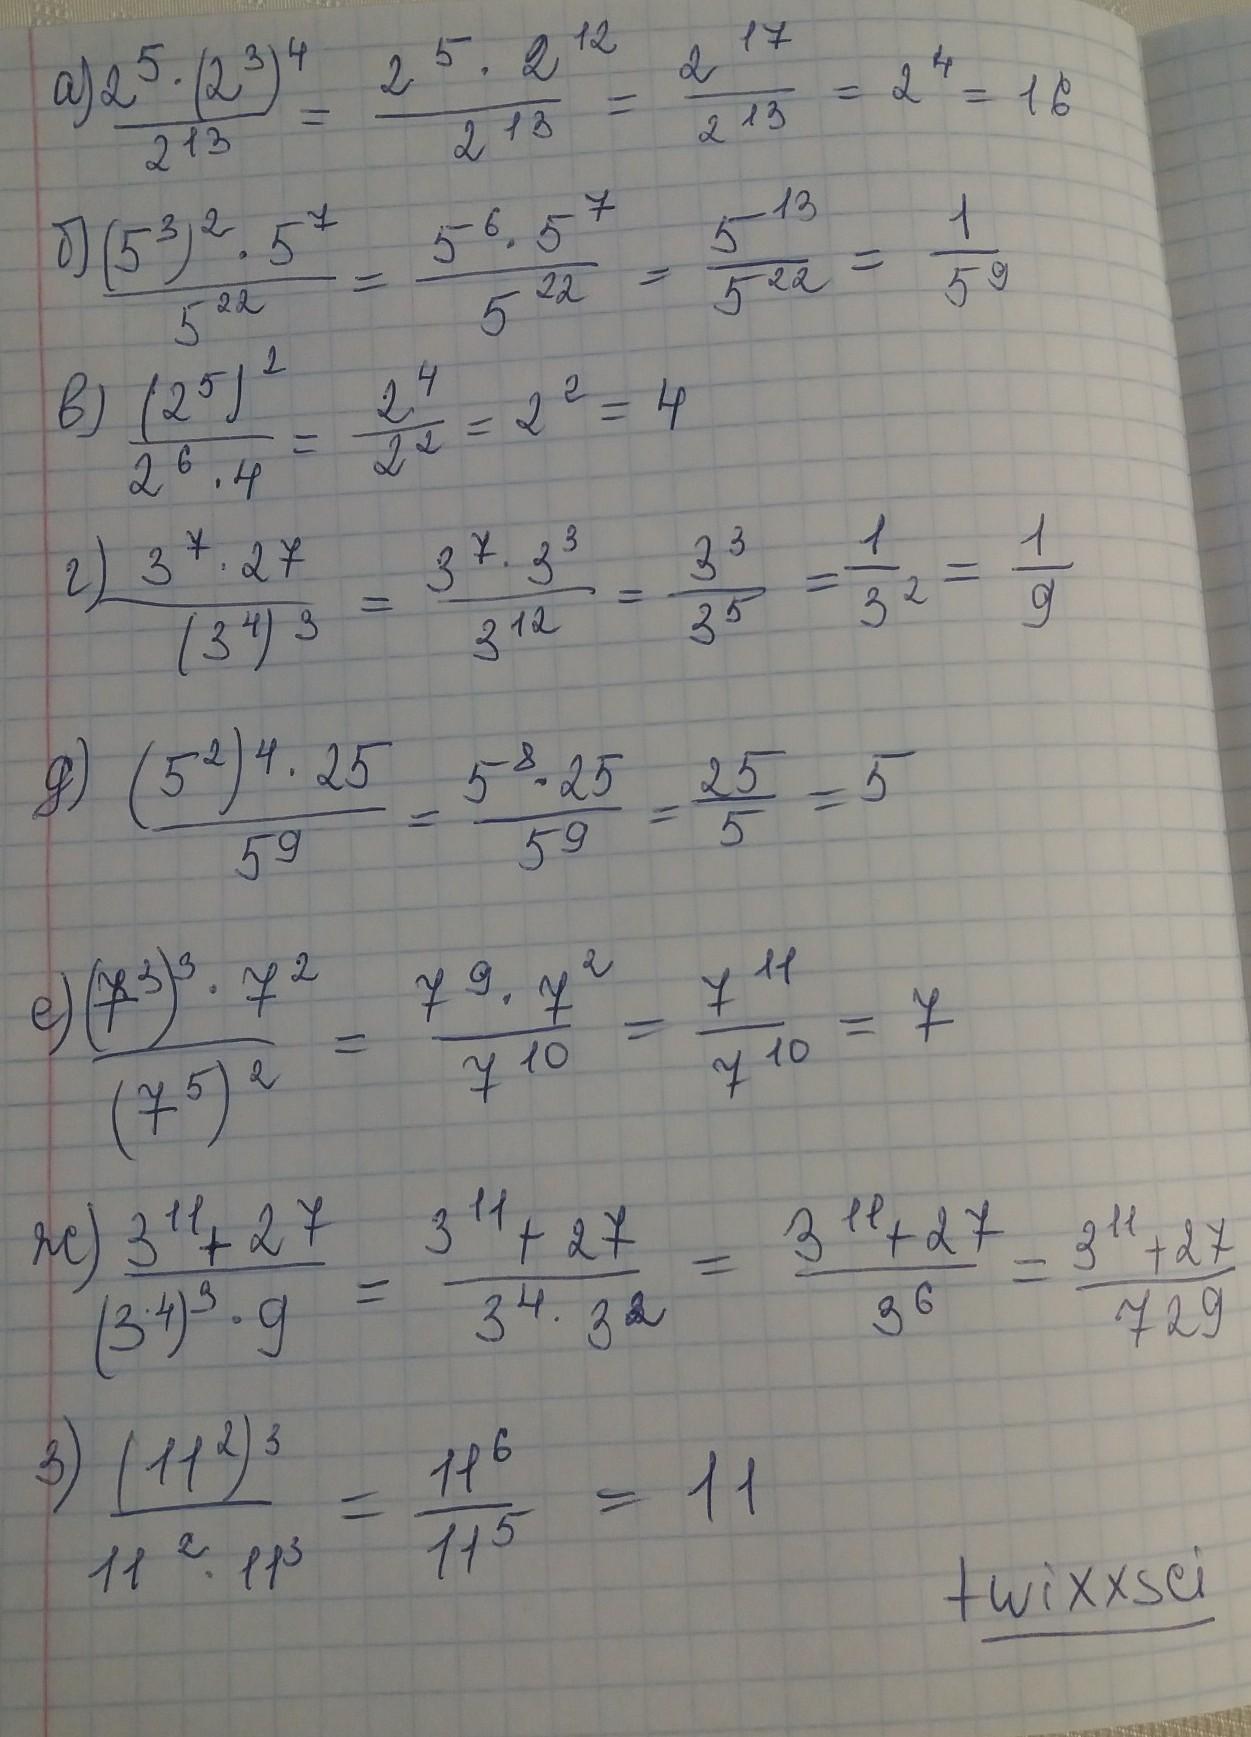 а) (2⁵ · (2³)⁴)/2¹³ = (2⁵ · 2¹²)/2¹³ = 2¹⁷/2¹³ = 2⁴ = 16
б) ((5³)² · 5⁷)/5²² = (5⁶ · 5⁷)/5²² = 5¹³/5²² = 1/5⁹
в) (2⁵)²/(2⁶ · 4) = 2⁴/2² = 2² = 4
г) (3⁷ · 27)/(3⁴)³ = (3⁷ · 3³)/3¹² = 3³/3⁵ = 1/3² = 1/9
д) ((5²)⁴ · 25)/5⁹ = (5⁸ · 25)/5⁹ = 25/5 = 5
е) ((7³)³ · 7²)/(7⁵)² = (7⁹ · 7²)/7¹⁰ = 7¹¹/7¹⁰ = 7
ж) (3¹¹ + 27)/((3·4)³ · 9) = (3¹¹ + 27)/(3⁴ · 3²) = (3¹¹ + 27)/3⁶ = (3¹¹ + 27)/729
з) (11²)³/(11² · 11³) = 11⁶/11⁵ = 11
twixxsci